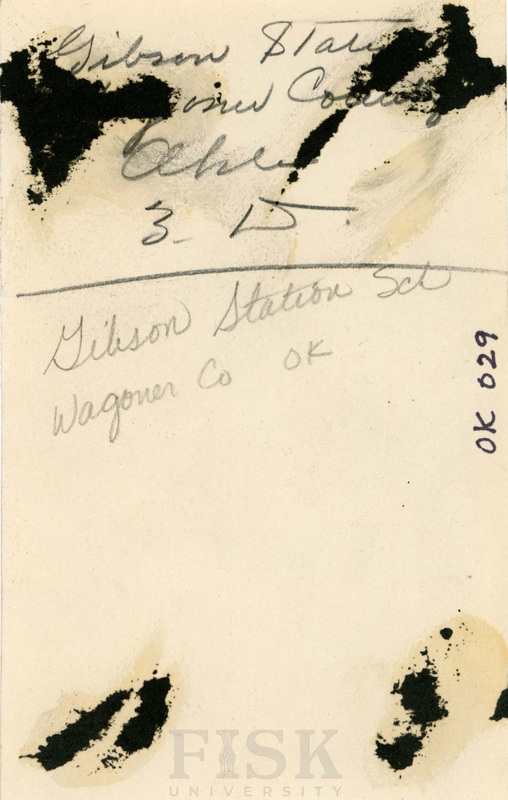 Gibson Stati
County
Okla
3- 15
Gibson Station Scl
Wagoner Co OK
OK 029
FISK
UNIVERSITY